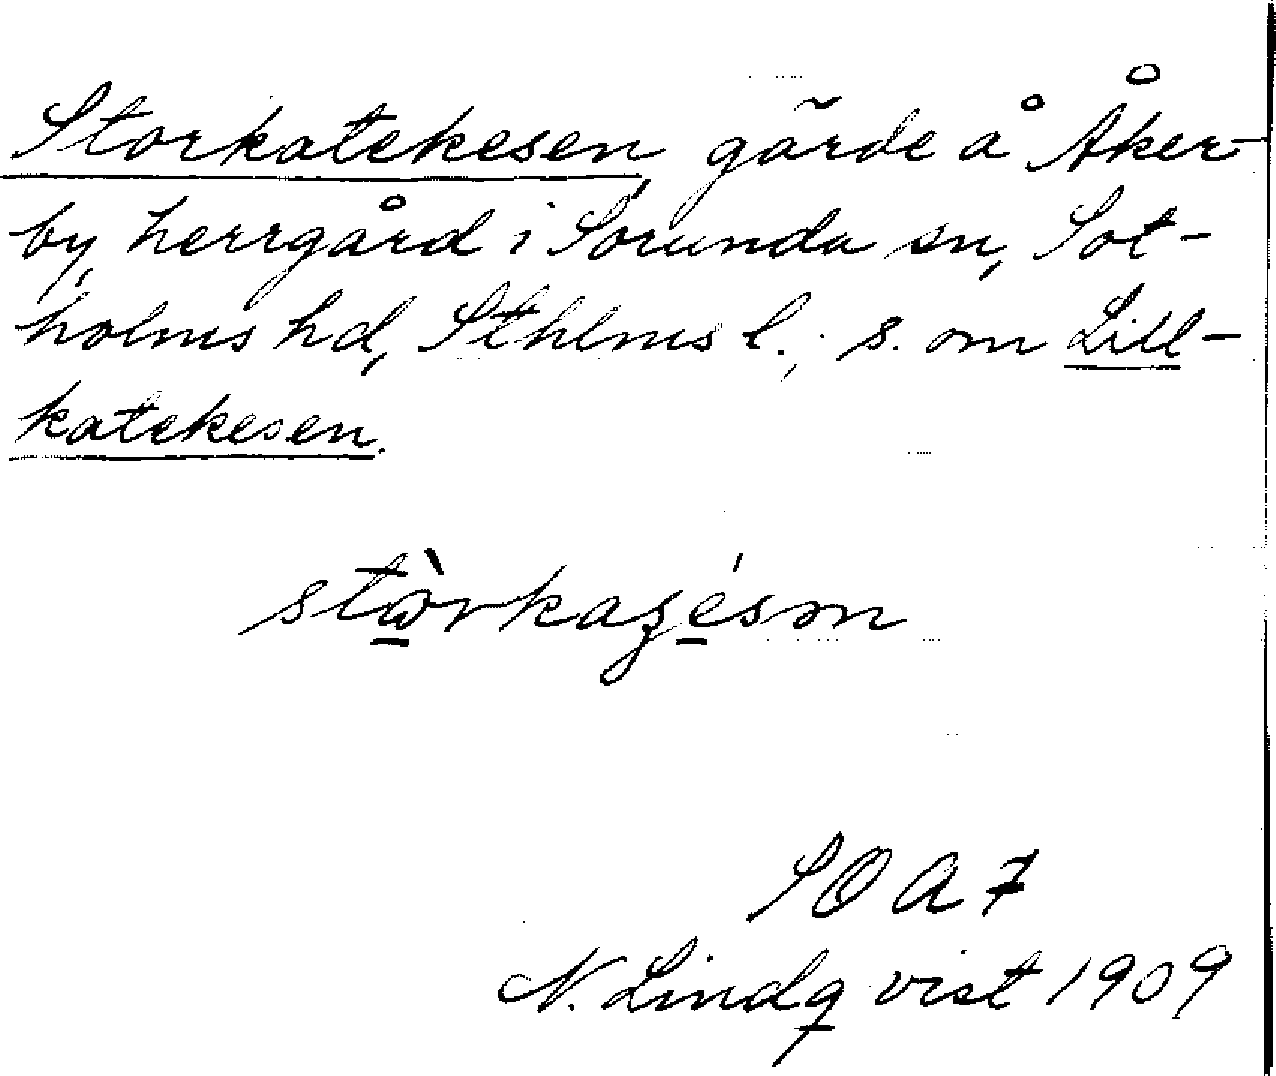 Storkatekesen, gärde å Åker-
by, herrgård i Sorunda sn, Sot-
holms hd, Sthlms l.; s. om Lill-
katekesen.
SOA 7
N. Lindqvist 1909